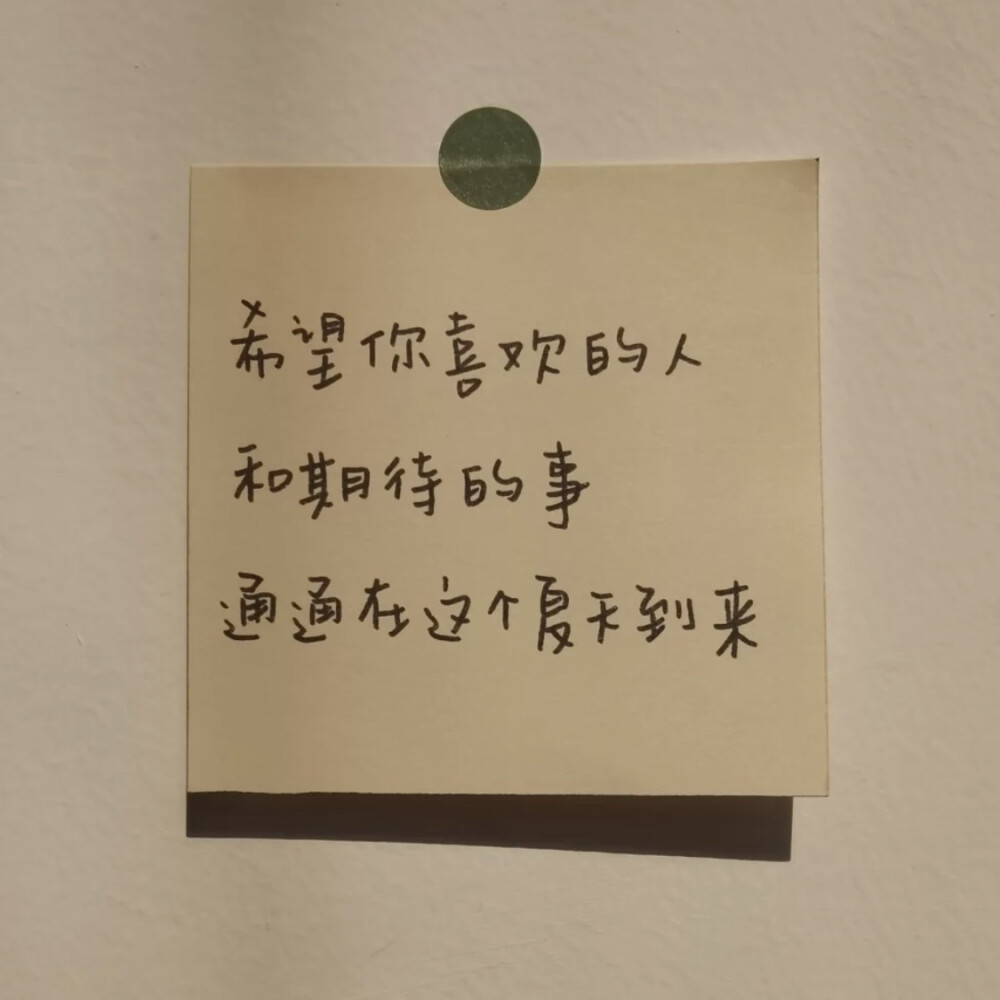 希望你喜欢的人
和期待的事
通通在这个夏天到来